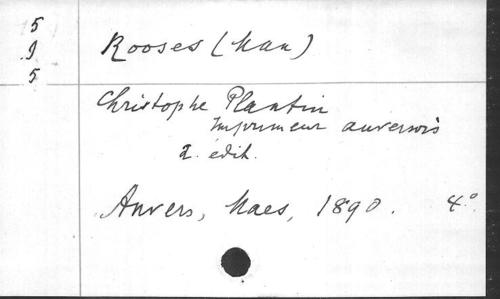 5
9
5
Rooses (Max)
Christophe Plantin
Imprimeur anversois
2. édit.
Anvers, Maes, 1890. 4°.